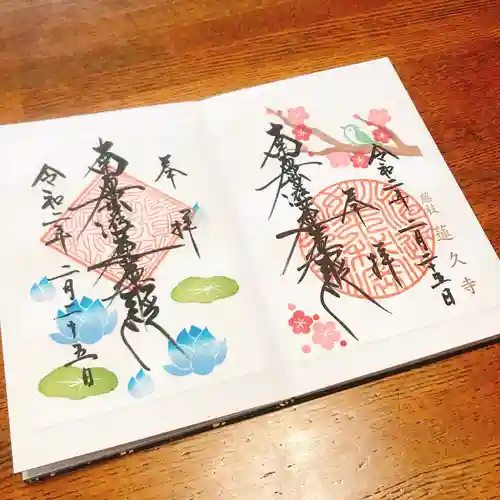 奉拝
藤枝 蓮久寺
令和二年二月二十五日
南無妙法蓮華経
奉拝
南無妙法蓮華経
令和二年 二月二十五日